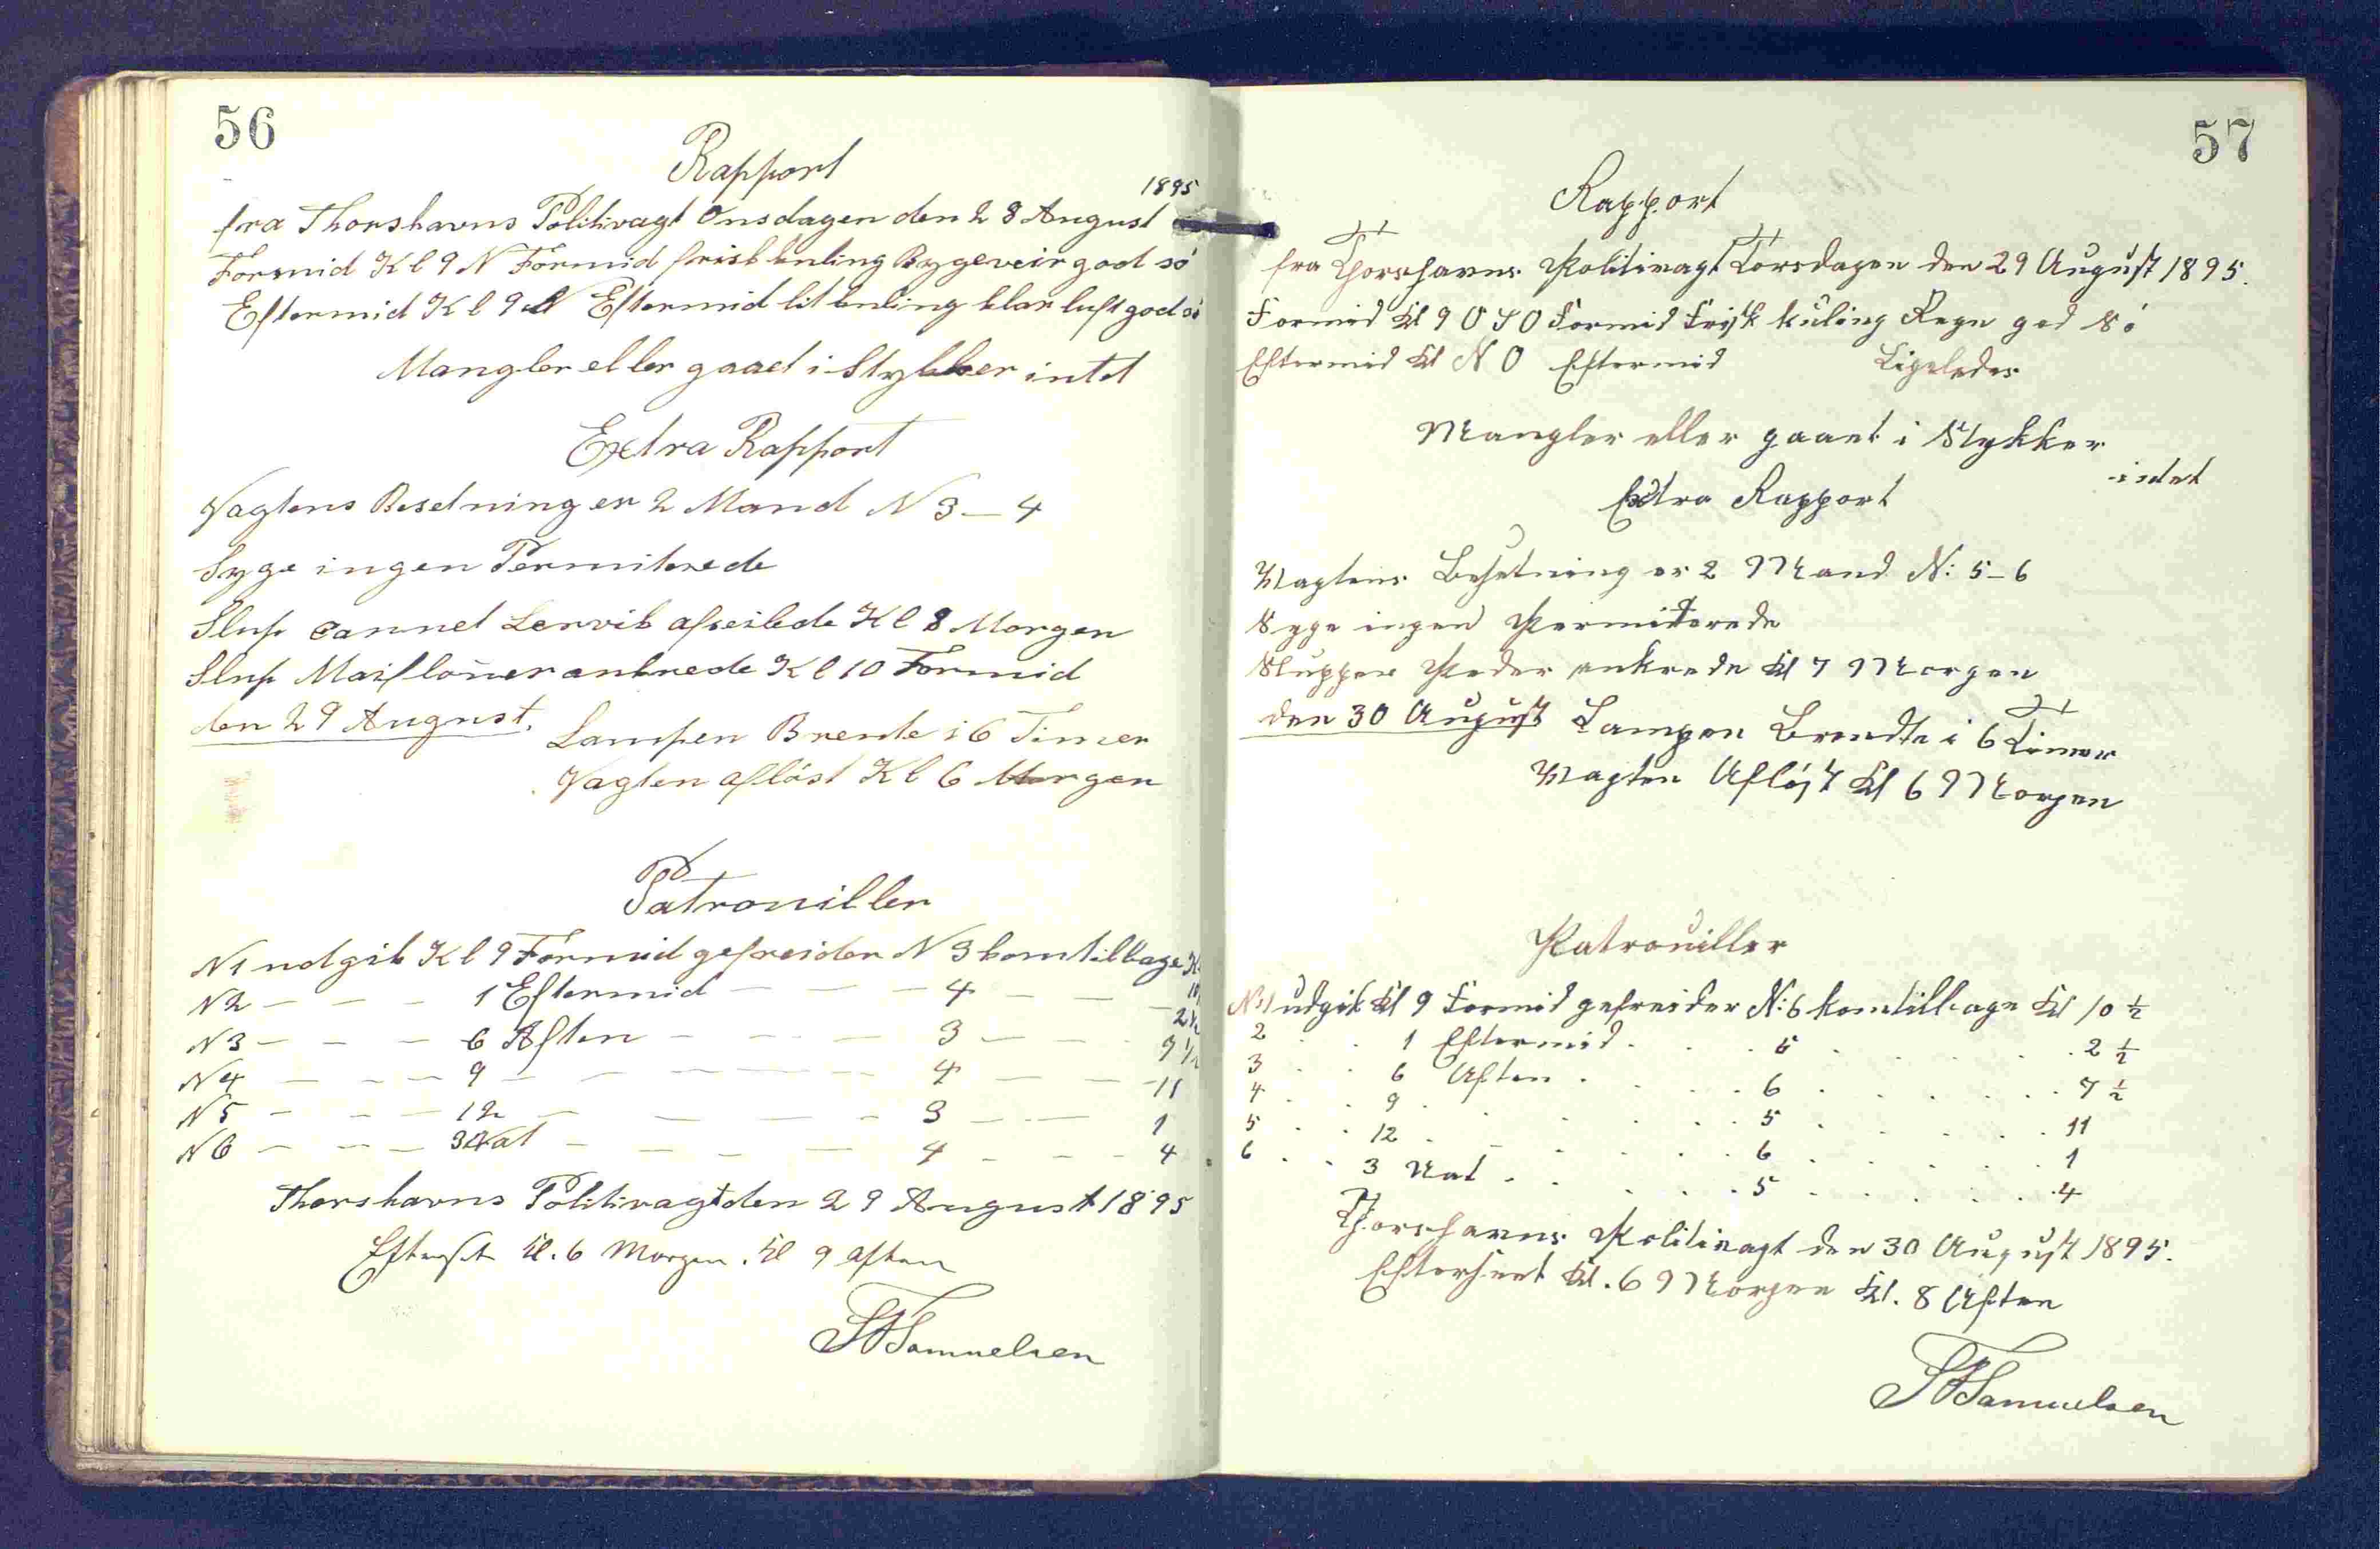 56
Rapport
1895
fra Thorshavns Politivagt Onsdagen den 28 August
Formid Kl 9 N Formid frisk kuling Bygeveir god sö
Eftermid Kl 9 N Eftermid lit kuling klar luft god sö
Mangler eller gaaet i Stykker intet
Extra Rapport
Vagtens Besetning er 2 Mand N 3 – 4
Syge ingen Permiterede
Slup Lervik afseilede Kl 8 Morgen
Slup Maiflower ankrede Kl 10 Formid
den 29 August. Lampen Brente i 6 Timer
Vagten aflöst Kl 6 Morgen
Patrouiller
N1 udgik Kl 9 Formid gefreider N 3 kom tilbage Kl
N2 – – – 1 Eftermid – – – 4 – – – 2½
N3 – – – 6 Aften – – – 3 – – –
N4 – – – 9 – – – – 4 – – – 11
N5 – – – 12 – – – – 3 – – – 1
N6 – – – 3 Nat – – – – 4 – – – 4
Thorshavns Politivagt den 29 August 1895
Efterset Kl. 6 Morgen. Kl 9 Aften
Samuelsen
57
Rapport
fra Thorshavns Politivagt Torsdagen den 29 August 1895.
Formid Kl 9 O S O Formid Frisk kuling Regn god Sö
Eftermid Kl N O Eftermid Ligeledes
Mangler eller gaaet i Stykker
intet
Extra Rapport
Vagtens Besetning er 2 Mand N: 5 – 6
Syge ingen Permiterede
Sluppen Peder ankrede Kl 7 Morgen
den 30 August Lampen Brendte i 6 Timer
Vagten Aflöst Kl 6 Morgen
Patrouiller
N:1 udgik Kl 9 Formid gefreider N:6 kom tilbage Kl 10 ½
2 . . 1 Eftermid . . . 5 . . . 2 ½
3 . . 6 Aften . . . 6 . . . 7 ½
4 . . 9 . . . 5 . . . 11
5 . . 12 . . . 6 . . . 1
6 . . 3 Nat . . . 5 . . . 4
Thorshavns Politivagt den 30 August 1895.
Efterseet Kl. 6 Morgen Kl. 8 Aften
Samuelsen